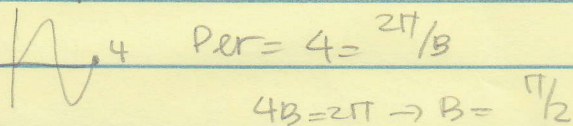 4 Per = 4 = 2π/B
4B = 2π → B = π/2